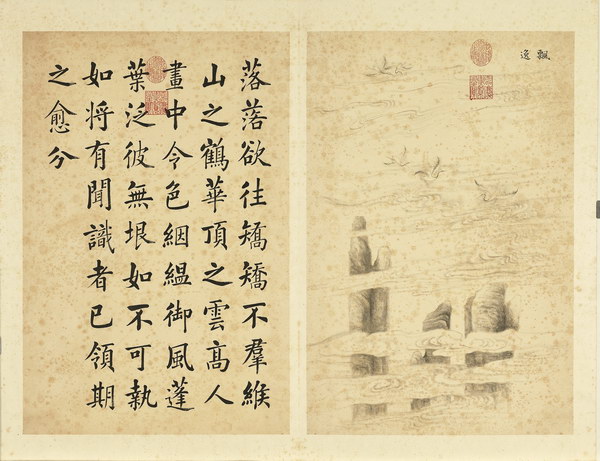 飄逸
落落欲往矯矯不羣緱
山之鶴華頂之雲高人
畫中令色絪縕御風蓬
葉泛彼無垠如不可執
如将有聞識者已領期
之愈分